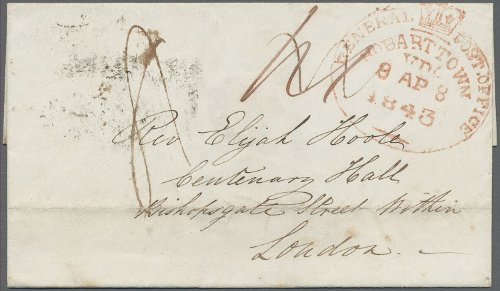 GENERAL POST OFFICE
HOBART TOWN
VDL
8 AP 8
1843
Rev Elijah Hoole
Centenary Hall
Bishopsgate Street Within
London.